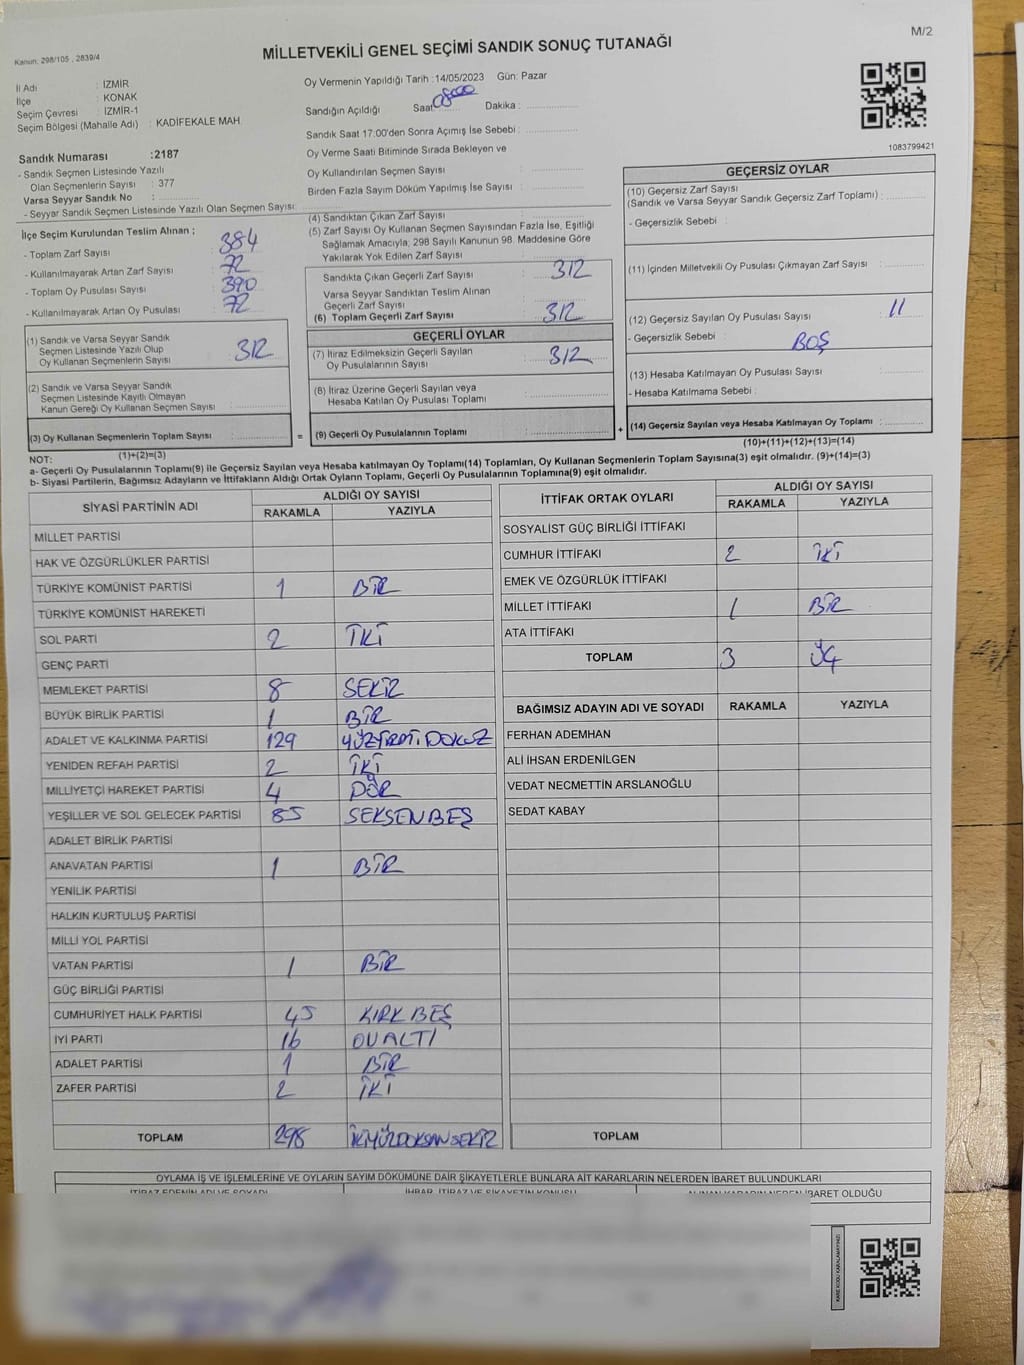 M/2
Kanun, 298/105 , 2839/4
MİLLETVEKİLİ GENEL SEÇİMİ SANDIK SONUÇ TUTANAĞI
İl Adı : İZMİR
İlçe : KONAK
Seçim Çevresi : İZMİR-1
Seçim Bölgesi (Mahalle Adı) : KADİFEKALE MAH.
Sandık Numarası :2187
- Sandık Seçmen Listesinde Yazılı
Olan Seçmenlerin Sayısı : 377
Varsa Seyyar Sandık No :
- Seyyar Sandık Seçmen Listesinde Yazılı Olan Seçmen Sayısı:
Oy Vermenin Yapıldığı Tarih :14/05/2023 Gün: Pazar
Sandığın Açıldığı Saat 08:00 Dakika :
Sandık Saat 17:00'den Sonra Açımış İse Sebebi :
Oy Verme Saati Bitiminde Sırada Bekleyen ve
Oy Kullandırılan Seçmen Sayısı :
Birden Fazla Sayım Döküm Yapılmış İse Sayısı :
1083799421
İlçe Seçim Kurulundan Teslim Alınan ;
- Toplam Zarf Sayısı : 384
- Kullanılmayarak Artan Zarf Sayısı : 72
- Toplam Oy Pusulası Sayısı : 390
- Kullanılmayarak Artan Oy Pusulası : 72
(1) Sandık ve Varsa Seyyar Sandık
Seçmen Listesinde Yazılı Olup
Oy Kullanan Seçmenlerin Sayısı : 312
(2) Sandık ve Varsa Seyyar Sandık
Seçmen Listesinde Kayıtlı Olmayan
Kanun Gereği Oy Kullanan Seçmen Sayısı :
(3) Oy Kullanan Seçmenlerin Toplam Sayısı :
(1)+(2)=(3)
(4) Sandıktan Çıkan Zarf Sayısı :
(5) Zarf Sayısı Oy Kullanan Seçmen Sayısından Fazla İse, Eşitliği
Sağlamak Amacıyla, 298 Sayılı Kanunun 98. Maddesine Göre
Yakılarak Yok Edilen Zarf Sayısı :
Sandıkta Çıkan Geçerli Zarf Sayısı : 312
Varsa Seyyar Sandıktan Teslim Alınan
Geçerli Zarf Sayısı :
(6) Toplam Geçerli Zarf Sayısı : 312
GEÇERLİ OYLAR
(7) İtiraz Edilmeksizin Geçerli Sayılan
Oy Pusulalarının Sayısı : 312
(8) İtiraz Üzerine Geçerli Sayılan veya
Hesaba Katılan Oy Pusulası Toplamı :
= (9) Geçerli Oy Pusulalarının Toplamı :
GEÇERSİZ OYLAR
(10) Geçersiz Zarf Sayısı
(Sandık ve Varsa Seyyar Sandık Geçersiz Zarf Toplamı) :
- Geçersizlik Sebebi :
(11) İçinden Milletvekili Oy Pusulası Çıkmayan Zarf Sayısı :
(12) Geçersiz Sayılan Oy Pusulası Sayısı : 11
- Geçersizlik Sebebi : BOŞ
(13) Hesaba Katılmayan Oy Pusulası Sayısı :
- Hesaba Katılmama Sebebi :
+ (14) Geçersiz Sayılan veya Hesaba Katılmayan Oy Toplamı :
(10)+(11)+(12)+(13)=(14)
NOT:
a- Geçerli Oy Pusulalarının Toplamı(9) ile Geçersiz Sayılan veya Hesaba katılmayan Oy Toplamı(14) Toplamları, Oy Kullanan Seçmenlerin Toplam Sayısına(3) eşit olmalıdır. (9)+(14)=(3)
b- Siyasi Partilerin, Bağımsız Adayların ve İttifakların Aldığı Ortak Oyların Toplamı, Geçerli Oy Pusulalarının Toplamına(9) eşit olmalıdır.
SİYASİ PARTİNİN ADI ALDIĞI OY SAYISI
RAKAMLA YAZIYLA
MİLLET PARTİSİ
HAK VE ÖZGÜRLÜKLER PARTİSİ
TÜRKİYE KOMÜNİST PARTİSİ 1 BİR
TÜRKİYE KOMÜNİST HAREKETİ
SOL PARTİ 2 İKİ
GENÇ PARTİ
MEMLEKET PARTİSİ 8 SEKİZ
BÜYÜK BİRLİK PARTİSİ 1 BİR
ADALET VE KALKINMA PARTİSİ 129 YÜZYİRMİ DOKUZ
YENİDEN REFAH PARTİSİ 2 İKİ
MİLLİYETÇİ HAREKET PARTİSİ 4 DÖR
YEŞİLLER VE SOL GELECEK PARTİSİ 85 SEKSEN BEŞ
ADALET BİRLİK PARTİSİ
ANAVATAN PARTİSİ 1 BİR
YENİLİK PARTİSİ
HALKIN KURTULUŞ PARTİSİ
MİLLİ YOL PARTİSİ
VATAN PARTİSİ 1 BİR
GÜÇ BİRLİĞİ PARTİSİ
CUMHURİYET HALK PARTİSİ 45 KIRK BEŞ
İYİ PARTİ 16 ON ALTI
ADALET PARTİSİ 1 BİR
ZAFER PARTİSİ 2 İKİ
TOPLAM 298 İKİYÜZDOKSANSEKİZ
İTTİFAK ORTAK OYLARI ALDIĞI OY SAYISI
RAKAMLA YAZIYLA
SOSYALİST GÜÇ BİRLİĞİ İTTİFAKI
CUMHUR İTTİFAKI 2 İKİ
EMEK VE ÖZGÜRLÜK İTTİFAKI
MİLLET İTTİFAKI 1 BİR
ATA İTTİFAKI
TOPLAM 3 ÜÇ
BAĞIMSIZ ADAYIN ADI VE SOYADI RAKAMLA YAZIYLA
FERHAN ADEMHAN
ALİ İHSAN ERDENİLGEN
VEDAT NECMETTİN ARSLANOĞLU
SEDAT KABAY
TOPLAM
OYLAMA İŞ VE İŞLEMLERİNE VE OYLARIN SAYIM DÖKÜMÜNE DAİR ŞİKAYETLERLE BUNLARA AİT KARARLARIN NELERDEN İBARET BULUNDUKLARI
İTİRAZ EDENİN ADI VE SOYADI İHBAR, İTİRAZ VE ŞİKAYETİN KONUSU ALINAN KARARIN NEDEN İBARET OLDUĞU
KARE KODU KARALAMAYINIZ!